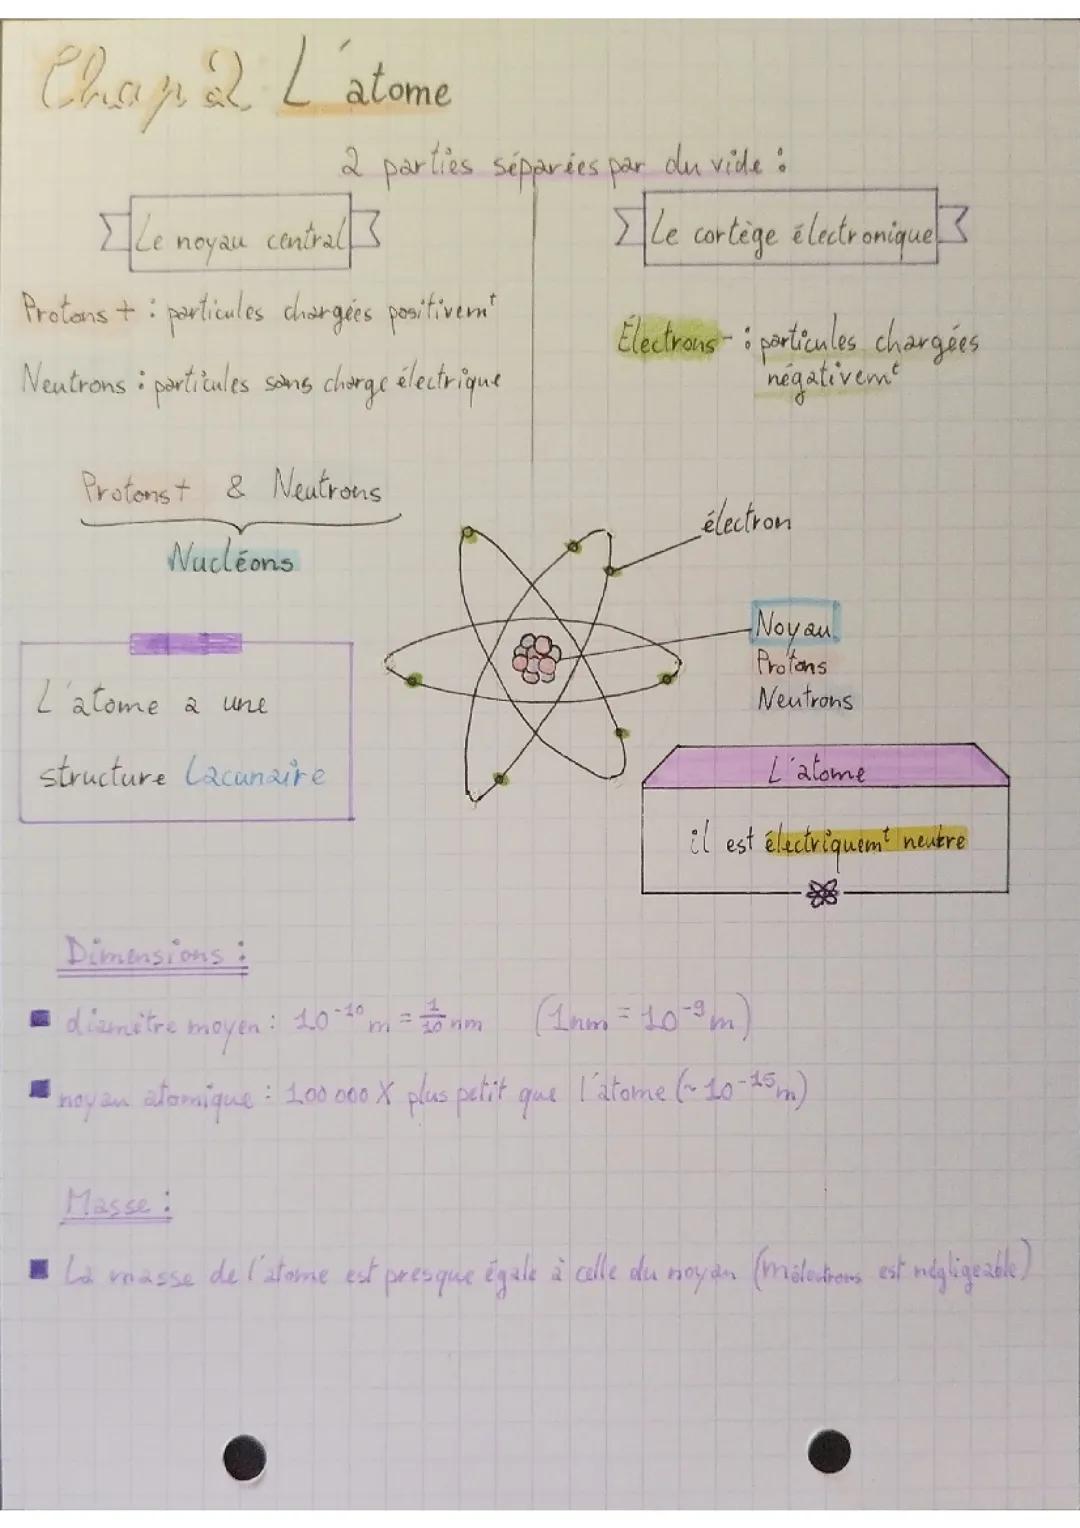 Chap 2 L'atome
2 parties séparées par du vide :
Le noyau central
Protons + : particules chargées positivemt
Neutrons : particules sans charge électrique
Le cortège électronique
Électrons - : particules chargées
négativemt
Protons + & Neutrons
Nucléons
électron
Noyau
Protons
Neutrons
L'atome a une
structure lacunaire
L'atome
il est électriquemt neutre
Dimensions :
diamètre moyen : 10⁻¹⁰ m = 1/10 nm (1nm = 10⁻⁹ m)
noyau atomique : 100 000 X plus petit que l'atome (~ 10⁻¹⁵ m)
Masse :
La masse de l'atome est presque égale à celle du noyau (mélectrons est négligeable)